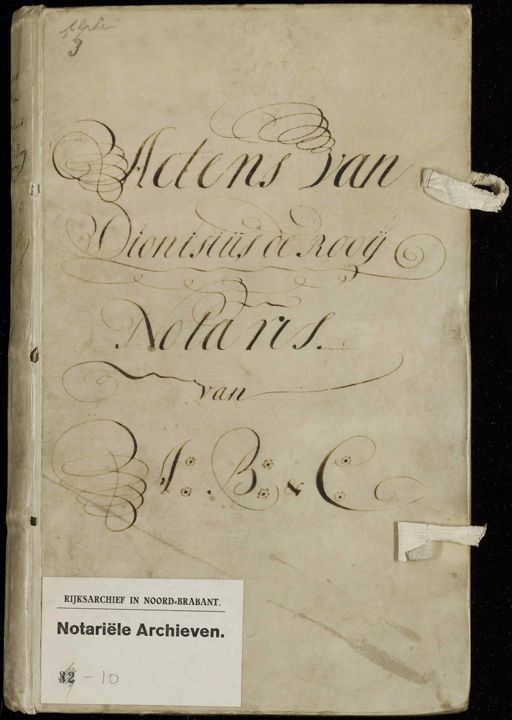 3
Actens van
Dionisiüs de Rooÿ
Notaris.
van
A: B: & C
RIJKSARCHIEF IN NOORD-BRABANT.
Notariële Archieven.
32 - 10